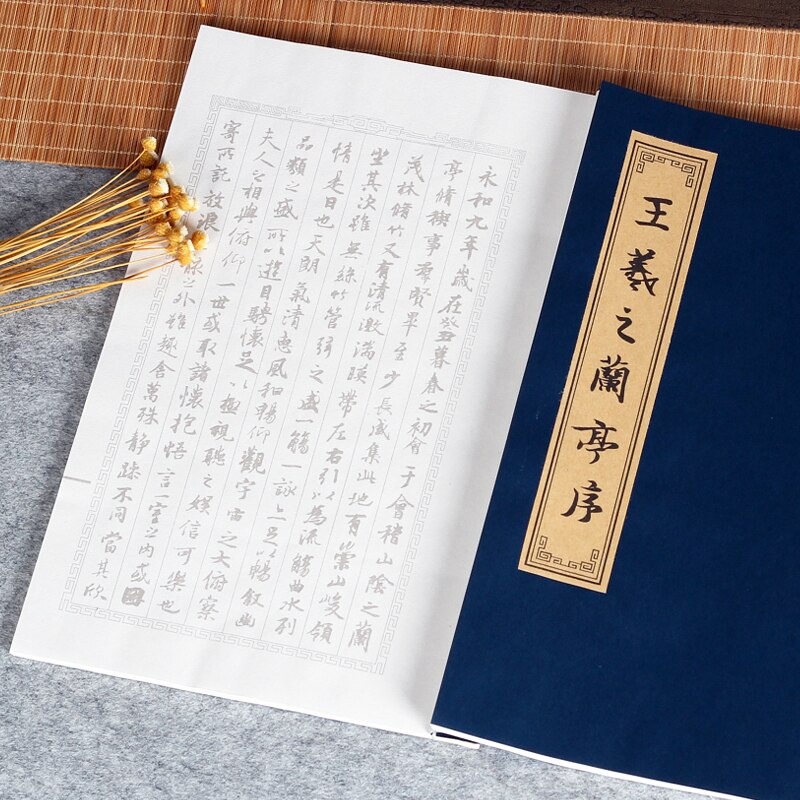 王羲之蘭亭序
永和九年歲在癸丑暮春之初會于會稽山陰之蘭
亭脩稧事羣賢畢至少長咸集此地有崇山峻領
茂林脩竹又有清流激湍暎帶左右引以為流觴曲水列
坐其次雖無絲竹管弦之盛一觴一詠亦足以暢叙幽
情是日也天朗氣清惠風和暢仰觀宇宙之大俯察
品類之盛所以遊目騁懷足以極視聽之娛信可樂也
夫人之相與俯仰一世或取諸懷抱悟言一室之内或
寄所託放浪骸之外雖趣舍萬殊静躁不同當其欣